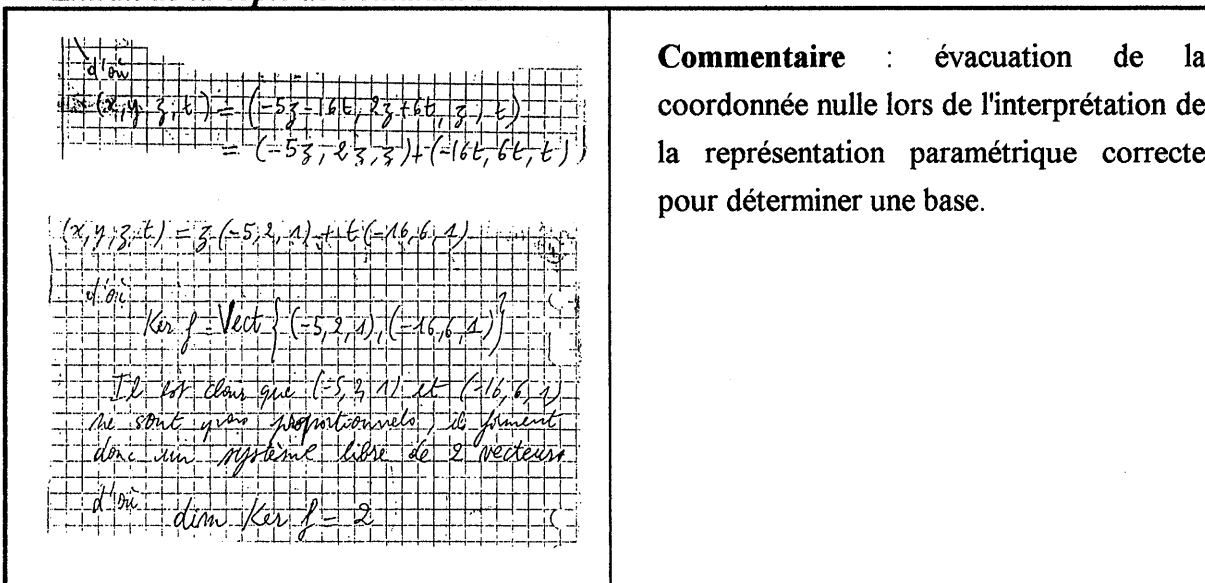 d'où
(x, y, z, t) = (-5z-16t, 2z+6t, z, t)
= (-5z, 2z, z)+(-16t, 6t, t)
(x, y, z, t) = z(-5, 2, 1) + t(-16, 6, 1)
d'où
Ker f = Vect {(-5, 2, 1), (-16, 6, 1)}
Il est clair que (-5, 2, 1) et (-16, 6, 1)
ne sont pas proportionnels, il forment
donc un système libre de 2 vecteurs
d'où dim Ker f = 2
Commentaire : évacuation de la
coordonnée nulle lors de l'interprétation de
la représentation paramétrique correcte
pour déterminer une base.